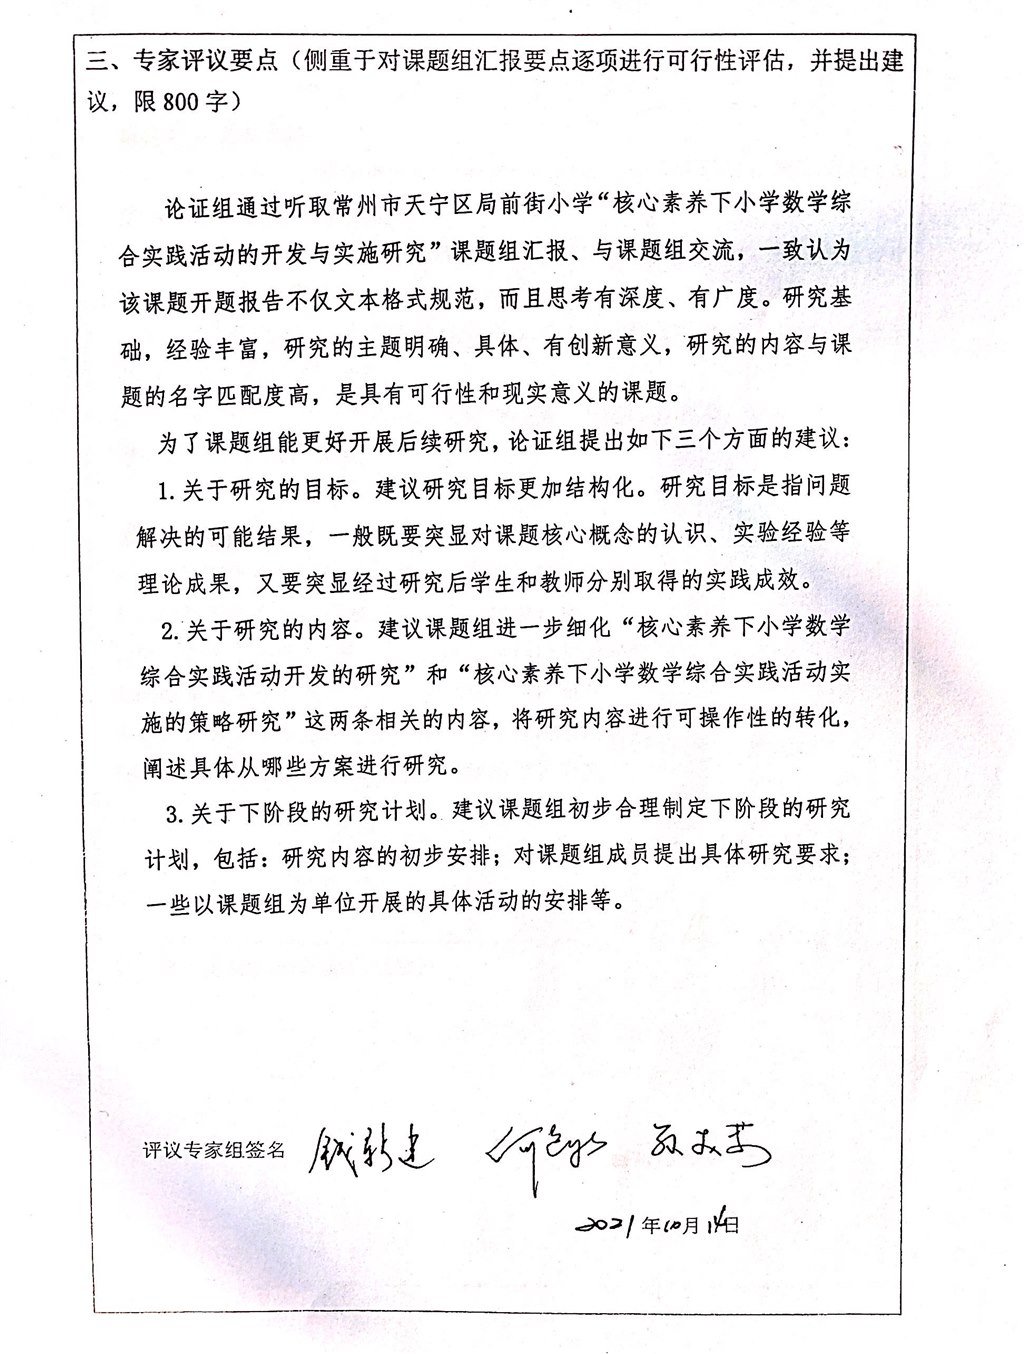 三、专家评议要点（侧重于对课题组汇报要点逐项进行可行性评估，并提出建
议，限 800 字）
论证组通过听取常州市天宁区局前街小学“核心素养下小学数学综
合实践活动的开发与实施研究”课题组汇报、与课题组交流，一致认为
该课题开题报告不仅文本格式规范，而且思考有深度、有广度。研究基
础，经验丰富，研究的主题明确、具体、有创新意义，研究的内容与课
题的名字匹配度高，是具有可行性和现实意义的课题。
为了课题组能更好开展后续研究，论证组提出如下三个方面的建议：
1.关于研究的目标。建议研究目标更加结构化。研究目标是指问题
解决的可能结果，一般既要突显对课题核心概念的认识、实验经验等
理论成果，又要突显经过研究后学生和教师分别取得的实践成效。
2.关于研究的内容。建议课题组进一步细化“核心素养下小学数学
综合实践活动开发的研究”和“核心素养下小学数学综合实践活动实
施的策略研究”这两条相关的内容，将研究内容进行可操作性的转化，
阐述具体从哪些方案进行研究。
3.关于下阶段的研究计划。建议课题组初步合理制定下阶段的研究
计划，包括：研究内容的初步安排；对课题组成员提出具体研究要求；
一些以课题组为单位开展的具体活动的安排等。
评议专家组签名 钱新建
2021年10月14日